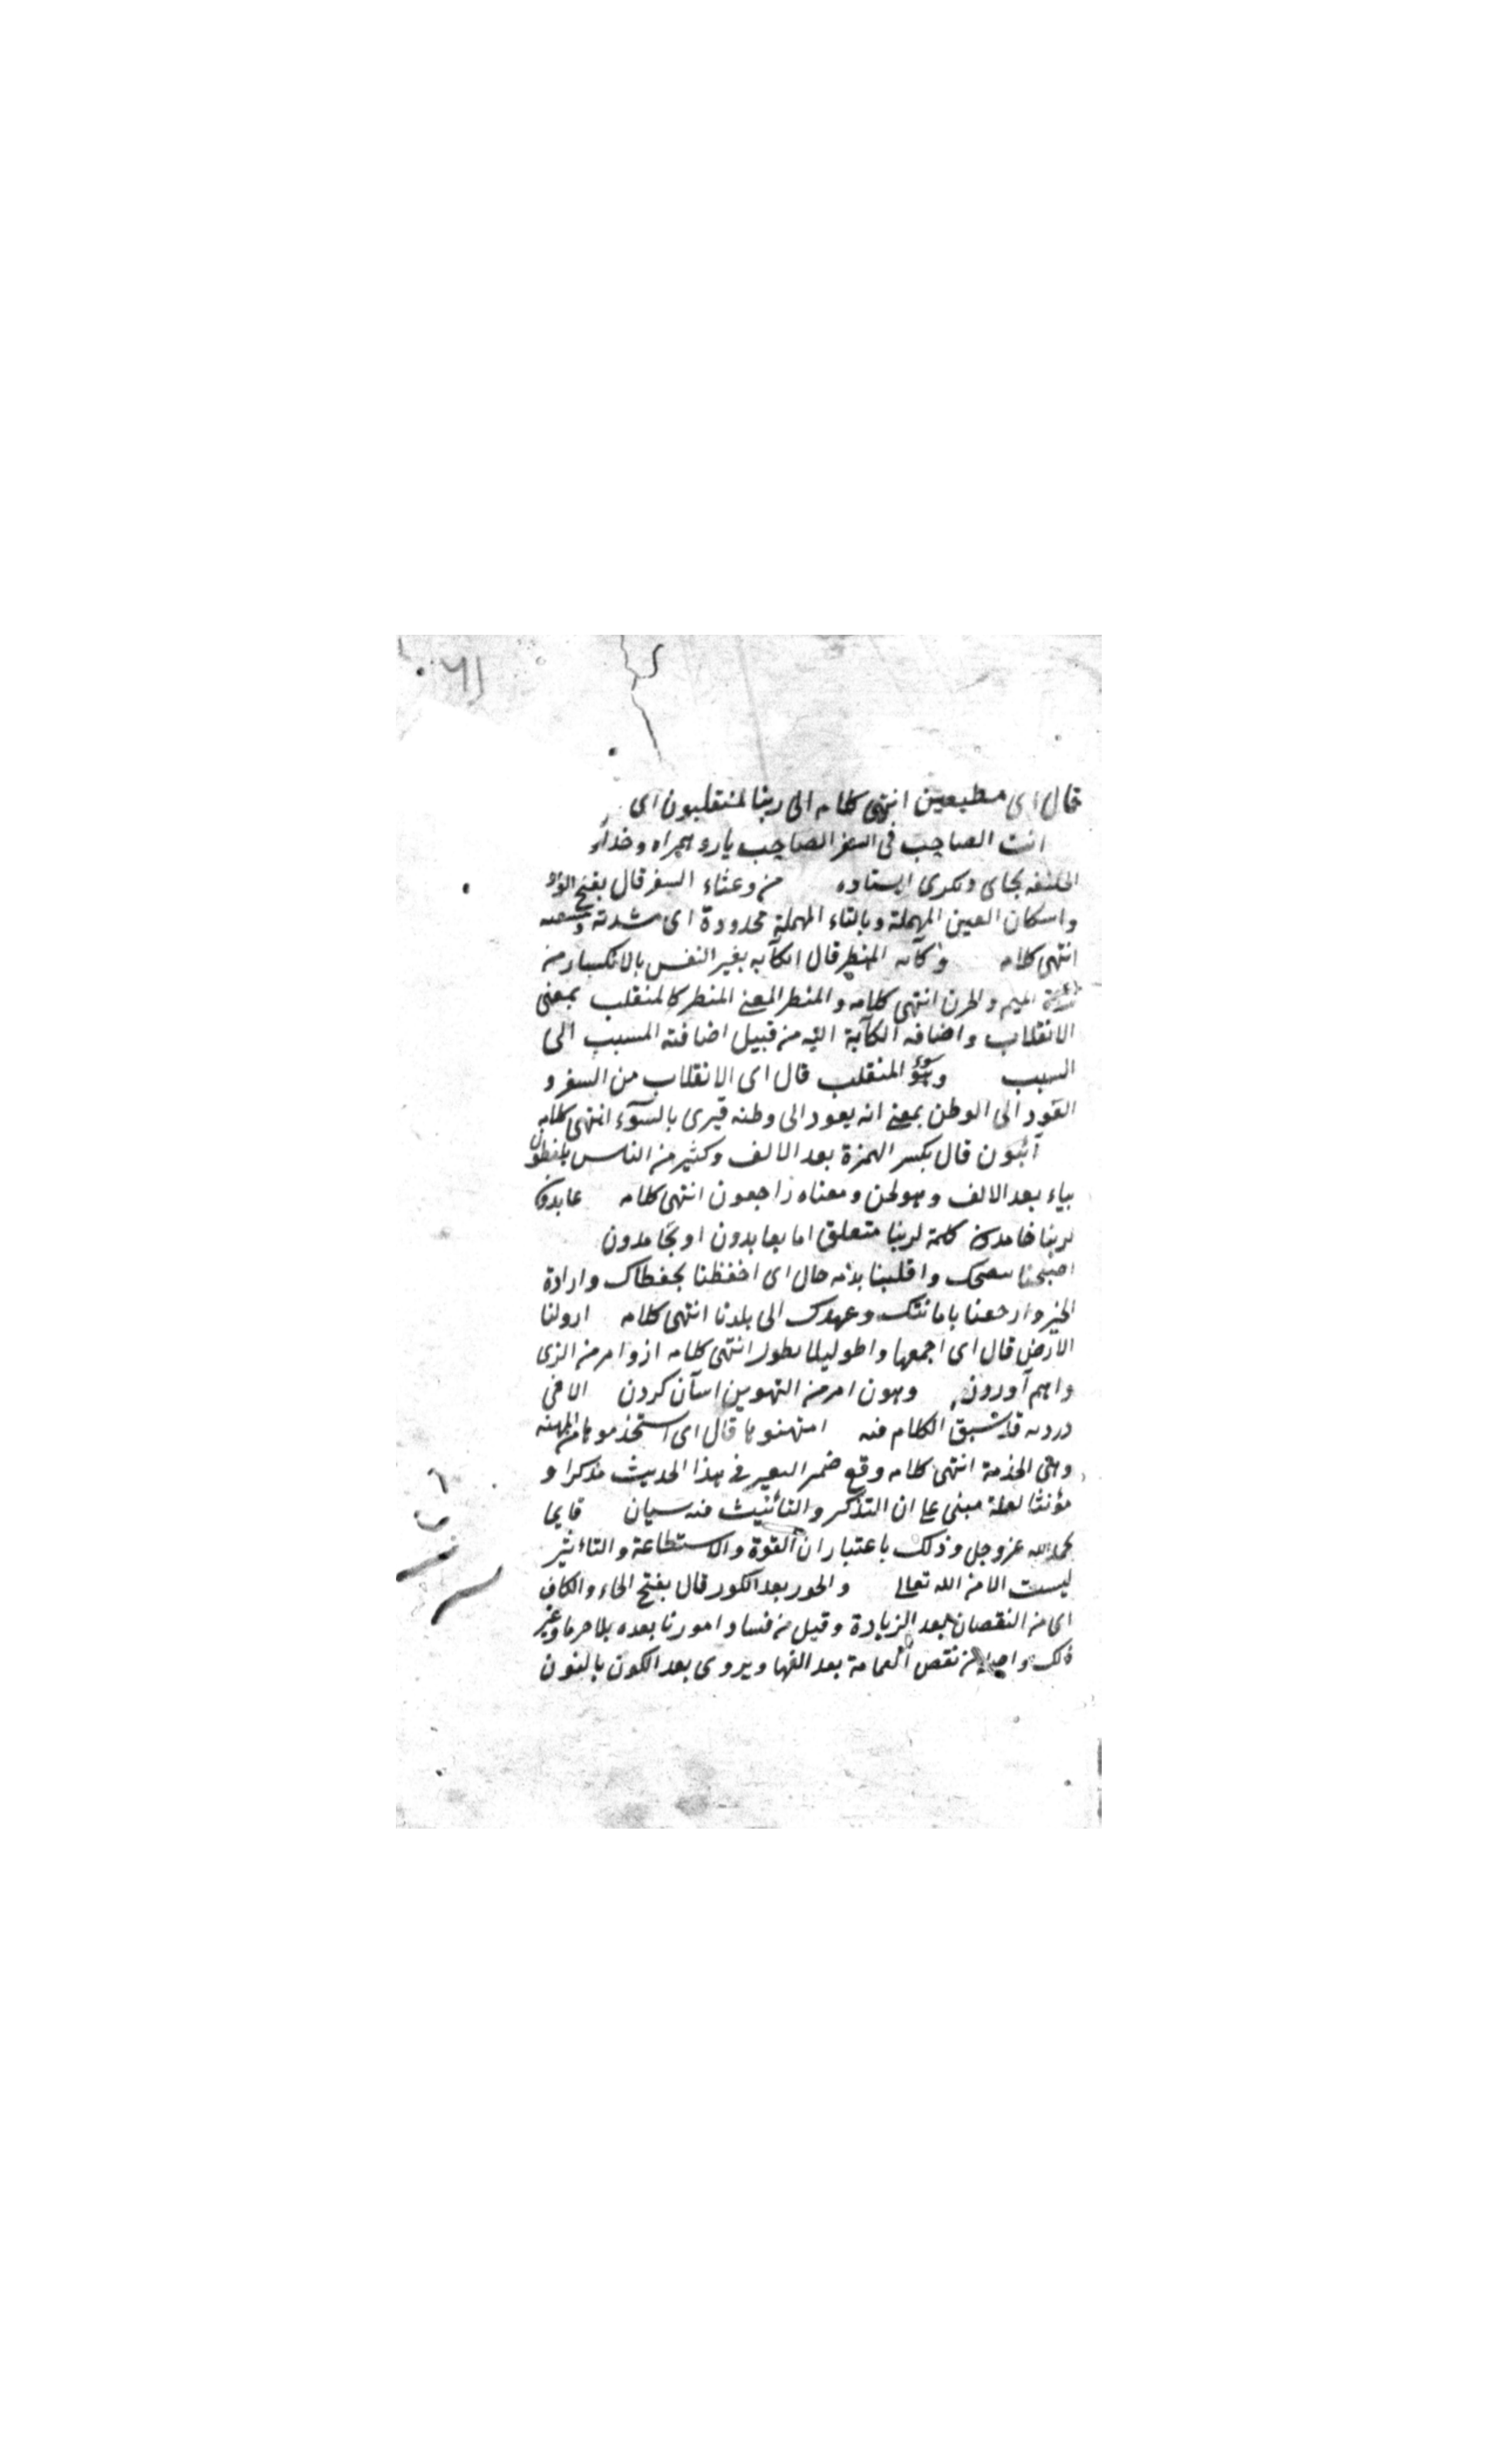 ٦١
قال اى مطيعين انتهى كلامه الى ربنا لمنقلبون اى
انت الصاحب فى السفر الصاحب يار و همراه و خداوند
الخليفه بجاى ديگرى ايستاده من وعثاء السفر قال بفتح الواو
واسكان العين المهملة وبالثاء المهملة محدودة اى شدته و
انتهى كلامه وكآبه المنظر قال الكآبه بغير النفس بالانكسار من
الهم والحزن انتهى كلامه والمنظر المعنى المنظر كالمنقلب بمعنى
الانقلاب واضافه الكآبة اليه من قبيل اضافته المسبب الى
السبب وسوء المنقلب قال اى الانقلاب من السفر و
القود الى الوطن بمعنى انه يعود الى وطنه فيرى بالسوء انتهى كلامه
آئبون قال بكسر الهمزة بعد الالف وكثير من الناس يلفظون
بياء بعد الالف وهو لحن ومعناه راجعون انتهى كلامه عابدون
لربنا حامدون كلمة لربنا متعلق اما بعابدون او بحامدون
اصبحنا بصحبتك واقلبنا بذمه حال اى احفظنا بحفظك وارادة
الخير وارجعنا بامانتك وعهدك الى بلدنا انتهى كلامه ازولنا
الارض قال اى اجمعها واطو انتهى كلامه ازو امر من الزى
واهم آوردن وهون امر من التهوين اسان كردن الافى
قد سبق الكلام فيه امتهنوها قال اى استخدموها من المهنة
وهى الخدمة انتهى كلامه وقع ضمير البعير فى هذا الحديث مذكرا و
مؤنثا لعله مبنى على ان التذكير والتأنيث فيه سيان فايما
يحمل الله عز وجل وذلك باعتبار ان القوة والاستطاعة والتاءثير
ليست الا من الله تعالى والحور بعد الكور قال بفتح الحاء والكاف
اى من النقصان بعد الزيادة وقيل من فساد امورنا بعد صلاحها وغير
ذلك واصله من نقص العمامة بعد لفها ويروى بعد الكون بالنون